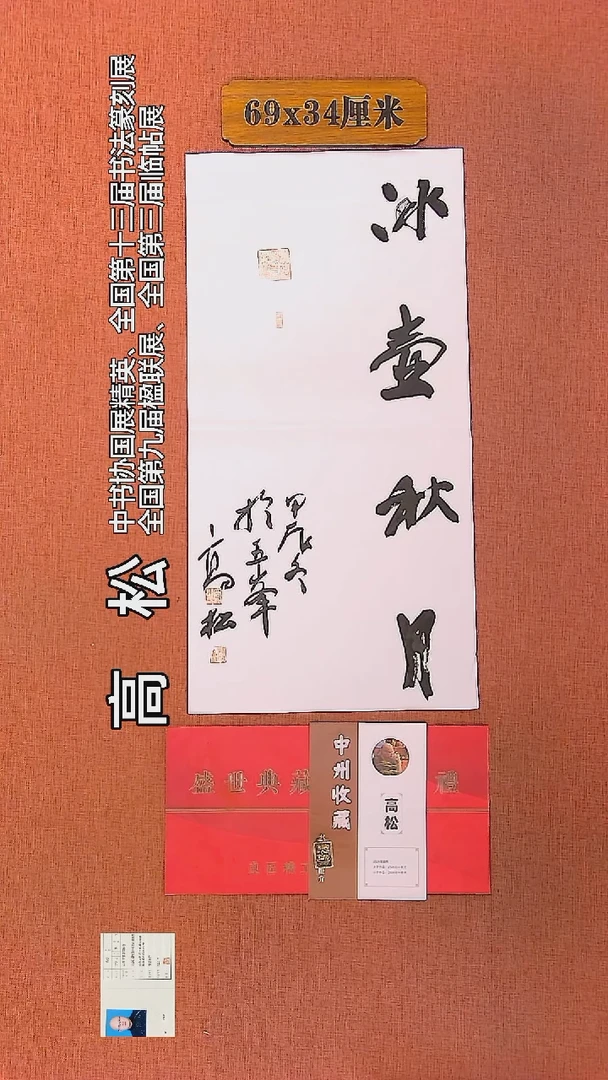 69x34厘米
冰壶秋月
甲辰冬
於五峯
高松
高 松
中书协国展精英、全国第十三届书法篆刻展
全国第九届楹联展、全国第三届临帖展
盛世典藏
禮
中州收藏
高松